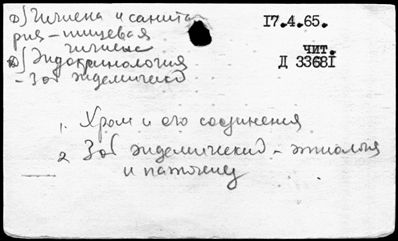 а) Гигиена и санита
рия - пищевая
гигиена
б) Эндокринология
- Зоб эндемический
17.4.65.
чит.
Д 33681
1. Хром и его соединения
2 Зоб эндемический - этиология
и патогенез